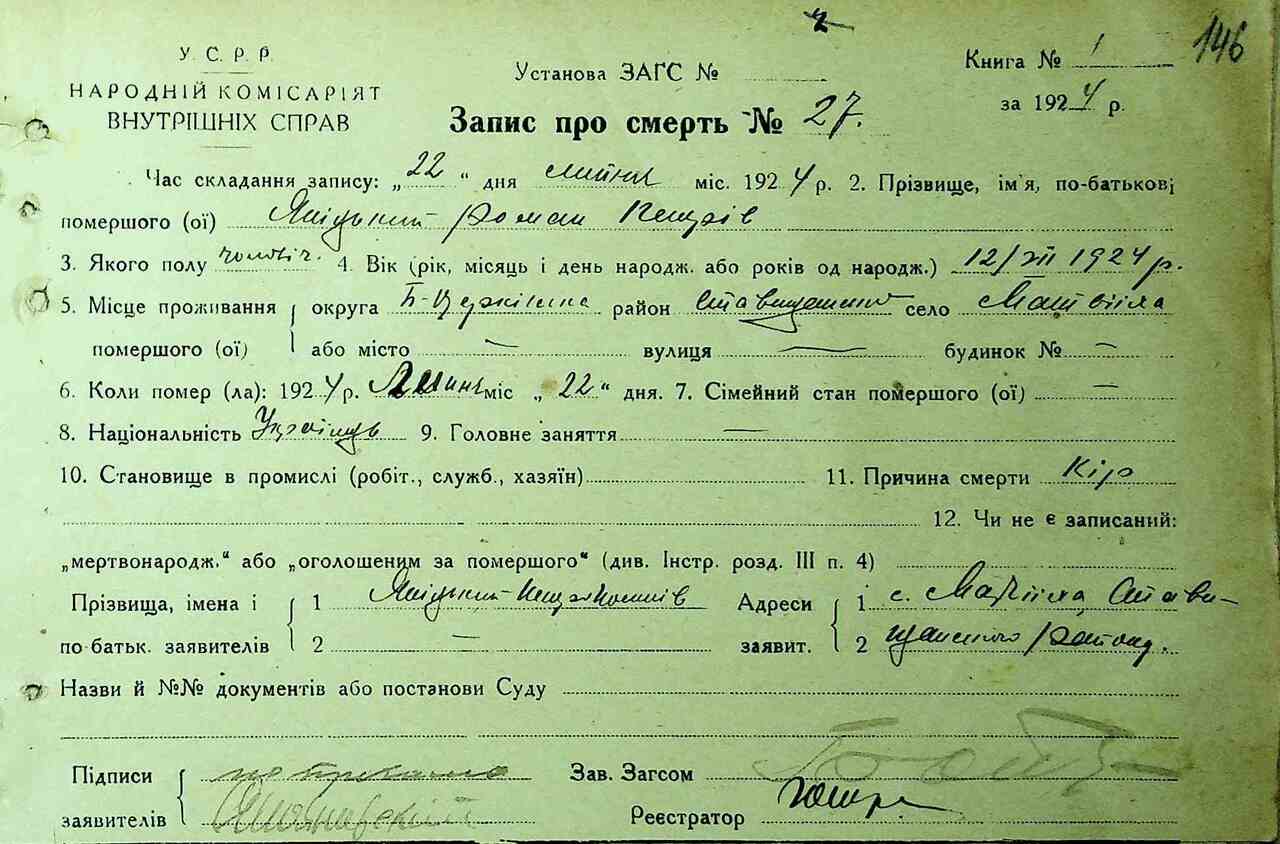 146
У. С. Р. Р.
НАРОДНІЙ КОМІСАРІЯТ
ВНУТРІШНІХ СПРАВ
Установа ЗАГС №
Книга № 1
за 1924 р.
Запис про смерть № 27.
Час складання запису: „22“ дня липня міс. 1924 р. 2. Прізвище, ім'я, по-батькові
помершого (ої) Роман Петрів
3. Якого полу чоловіч. 4. Вік (рік, місяць і день народж. або років од народж.) 12/XII 1924 р.
5. Місце проживання округа Б-Церківська район село
помершого (ої) або місто — вулиця — будинок № —
6. Коли помер (ла): 1924 р. Липня міс „22“ дня. 7. Сімейний стан помершого (ої) —
8. Національність Українць 9. Головне заняття —
10. Становище в промислі (робіт., служб., хазяїн) 11. Причина смерти Кір
12. Чи не є записаний:
„мертвонародж.“ або „оголошеним за помершого“ (див. Інстр. розд. III п. 4)
Прізвища, імена і 1 Адреси 1 с. Стави-
по-батьк. заявителів 2 — заявит. 2 щанського району.
Назви й №№ документів або постанови Суду
Підписи Зав. Загсом
заявителів Реєстратор